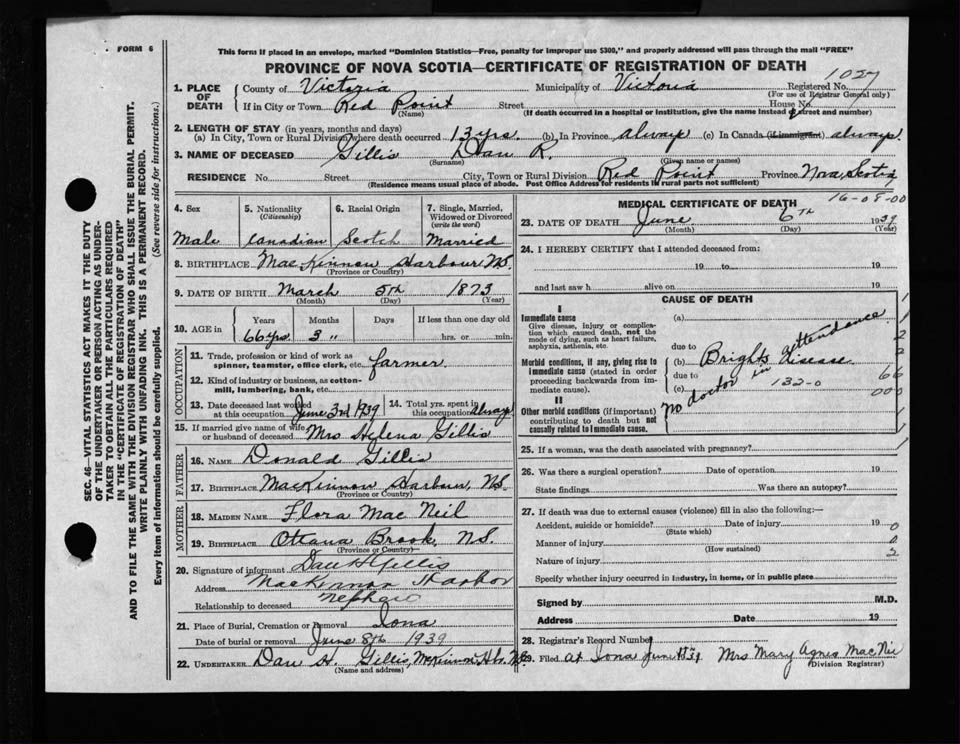 FORM 6
This form if placed in an envelope, marked "Dominion Statistics—Free, penalty for improper use $300," and properly addressed will pass through the mail "FREE"
PROVINCE OF NOVA SCOTIA—CERTIFICATE OF REGISTRATION OF DEATH
1027
1. PLACE OF DEATH
County of Victoria Municipality of Victoria Registered No.
(For use of Registrar General only)
If in City or Town Red Point Street House No.
(Name) (If death occurred in a hospital or institution, give the name instead of street and number)
2. LENGTH OF STAY (in years, months and days)
(a) In City, Town or Rural Division where death occurred 13 yrs. (b) In Province always (c) In Canada (if immigrant) always.
3. NAME OF DECEASED Gillis Dan R.
(Surname) (Given name or names)
RESIDENCE No. Street City, Town or Rural Division Red Point Province Nova Scotia
(Residence means usual place of abode. Post Office Address for residents in rural parts not sufficient)
16-08-00
4. Sex 5. Nationality (Citizenship) 6. Racial Origin 7. Single, Married, Widowed or Divorced (write the word)
Male Canadian Scotch Married
8. BIRTHPLACE MacKinnon Harbour N.S.
(Province or Country)
9. DATE OF BIRTH March 5th 1873
(Month) (Day) (Year)
10. AGE in Years Months Days If less than one day old
66 yrs 3 " hrs. or min.
OCCUPATION
11. Trade, profession or kind of work as spinner, teamster, office clerk, etc. farmer
12. Kind of industry or business, as cotton-mill, lumbering, bank, etc.
13. Date deceased last worked at this occupation June 3rd 1939 14. Total yrs. spent in this occupation Always
15. If married give name of wife or husband of deceased Mrs Helena Gillis
FATHER
16. NAME Donald Gillis
17. BIRTHPLACE MacKinnon Harbour, N.S.
(Province or Country)
MOTHER
18. MAIDEN NAME Flora Mac Neil
19. BIRTHPLACE Ottawa Brook, N.S.
(Province or Country)
20. Signature of informant Dan H Gillis
Address MacKinnon Harbor
Relationship to deceased Nephew
21. Place of Burial, Cremation or Removal Iona
Date of burial or removal June 8th 1939
22. UNDERTAKER Dan H. Gillis, McKinnon Hbr. N.S.
(Name and address)
MEDICAL CERTIFICATE OF DEATH
23. DATE OF DEATH June 6th 1939
(Month) (Day) (Year)
24. I HEREBY CERTIFY that I attended deceased from:
19 to 19
and last saw h alive on 19
CAUSE OF DEATH
I
Immediate cause
Give disease, injury or complication which caused death, not the mode of dying, such as heart failure, asphyxia, asthenia, etc.
(a)
due to
Morbid conditions, if any, giving rise to immediate cause (stated in order proceeding backwards from immediate cause).
(b) Brights disease
due to
(c) 132-0
No doctor in attendance
II
Other morbid conditions (if important) contributing to death but not causally related to immediate cause.
1
2
2
66
000
1
1
25. If a woman, was the death associated with pregnancy?
26. Was there a surgical operation? Date of operation 19
State findings Was there an autopsy?
27. If death was due to external causes (violence) fill in also the following:—
Accident, suicide or homicide? Date of injury 19 0
(State which)
Manner of injury 0
(How sustained)
Nature of injury 2
Specify whether injury occurred in industry, in home, or in public place
Signed by M.D.
Address Date 19
28. Registrar's Record Number
29. Filed at Iona June 1939 Mrs Mary Agnes MacNeil
(Division Registrar)
SEC. 46—VITAL STATISTICS ACT MAKES IT THE DUTY
OF THE UNDERTAKER OR PERSON ACTING AS UNDER-
TAKER TO OBTAIN ALL THE PARTICULARS REQUIRED
IN THE "CERTIFICATE OF REGISTRATION OF DEATH"
AND TO FILE THE SAME WITH THE DIVISION REGISTRAR WHO SHALL ISSUE THE BURIAL PERMIT.
WRITE PLAINLY WITH UNFADING INK. THIS IS A PERMANENT RECORD.
Every item of information should be carefully supplied. (See reverse side for instructions.)